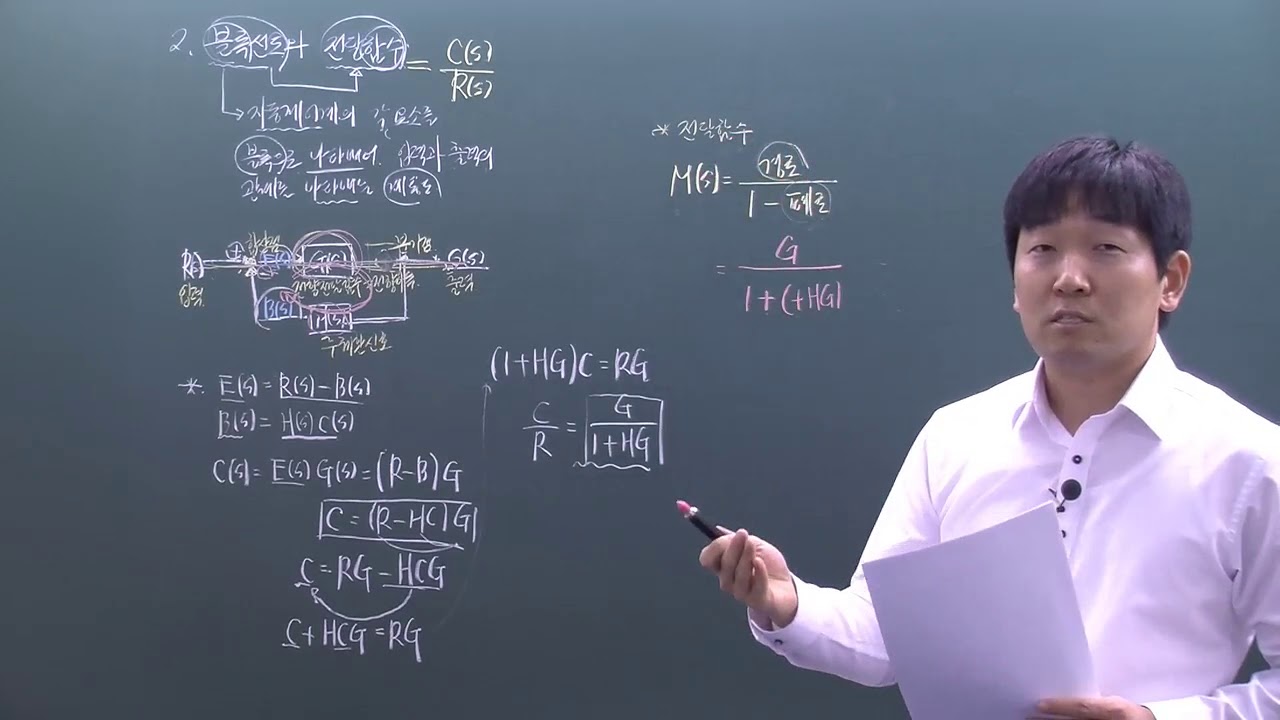 2. 블록선도와 전달함수 = C(s)/R(s)
→ 자동제어계의 각 요소를
블록으로 나타내어 입력과 출력의
관계를 나타내는 계통도
합산점 분기점
R(s) + E(s) G(s) C(s)
입력 전향전달함수 출력
B(s) H(s)
*. E(s) = R(s) - B(s)
B(s) = H(s) C(s)
C(s) = E(s) G(s) = (R-B) G
C = (R-HC) G
C = RG - HCG
C + HCG = RG
(1+HG)C = RG
C/R = G/(1+HG)
* 전달함수
M(s) = 경로/(1 - 폐로)
= G/(1+(+HG)